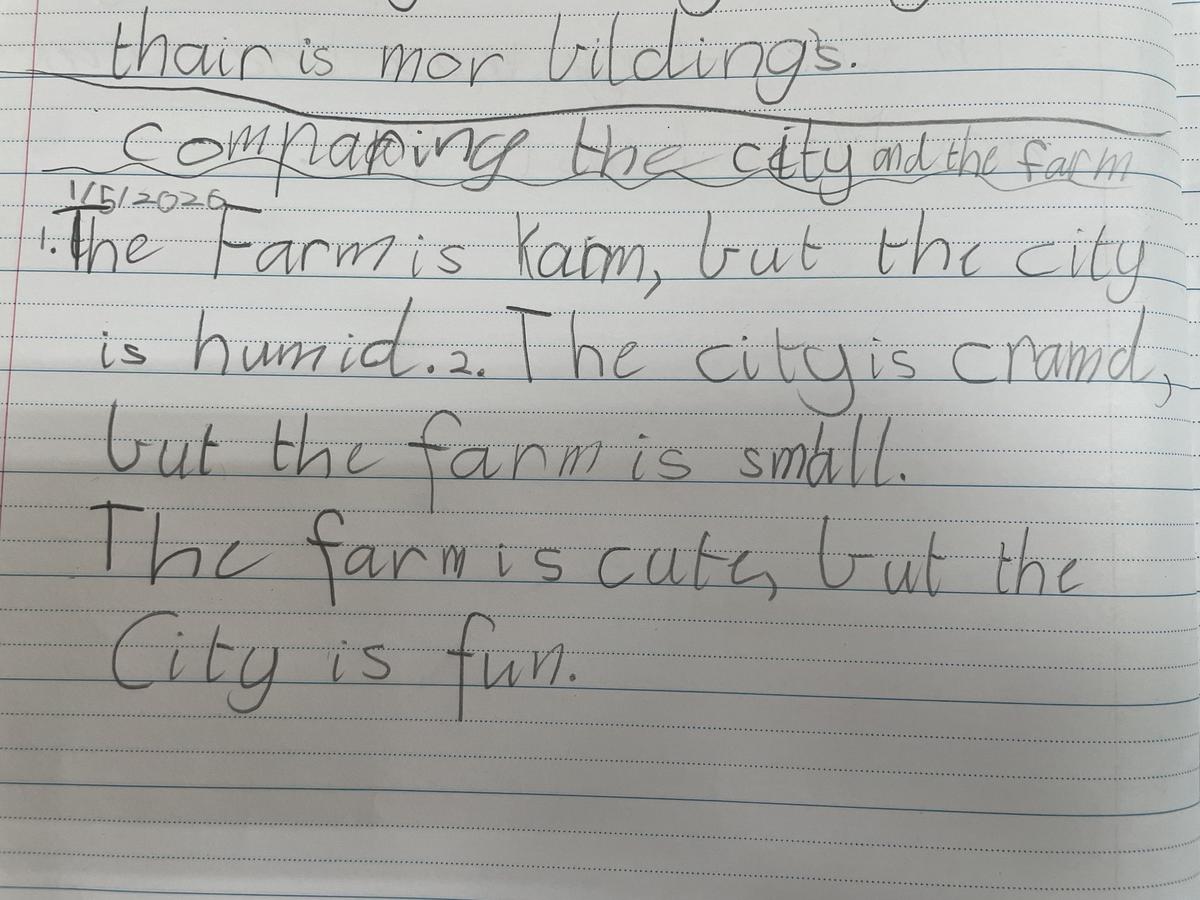 thair is mor bildings.
comparing the city and the farm
1/5/2026
1. The Farm is Kaim, but the city
is humid. 2. The city is cramd,
but the farm is small.
The farm is cute, but the
City is fun.